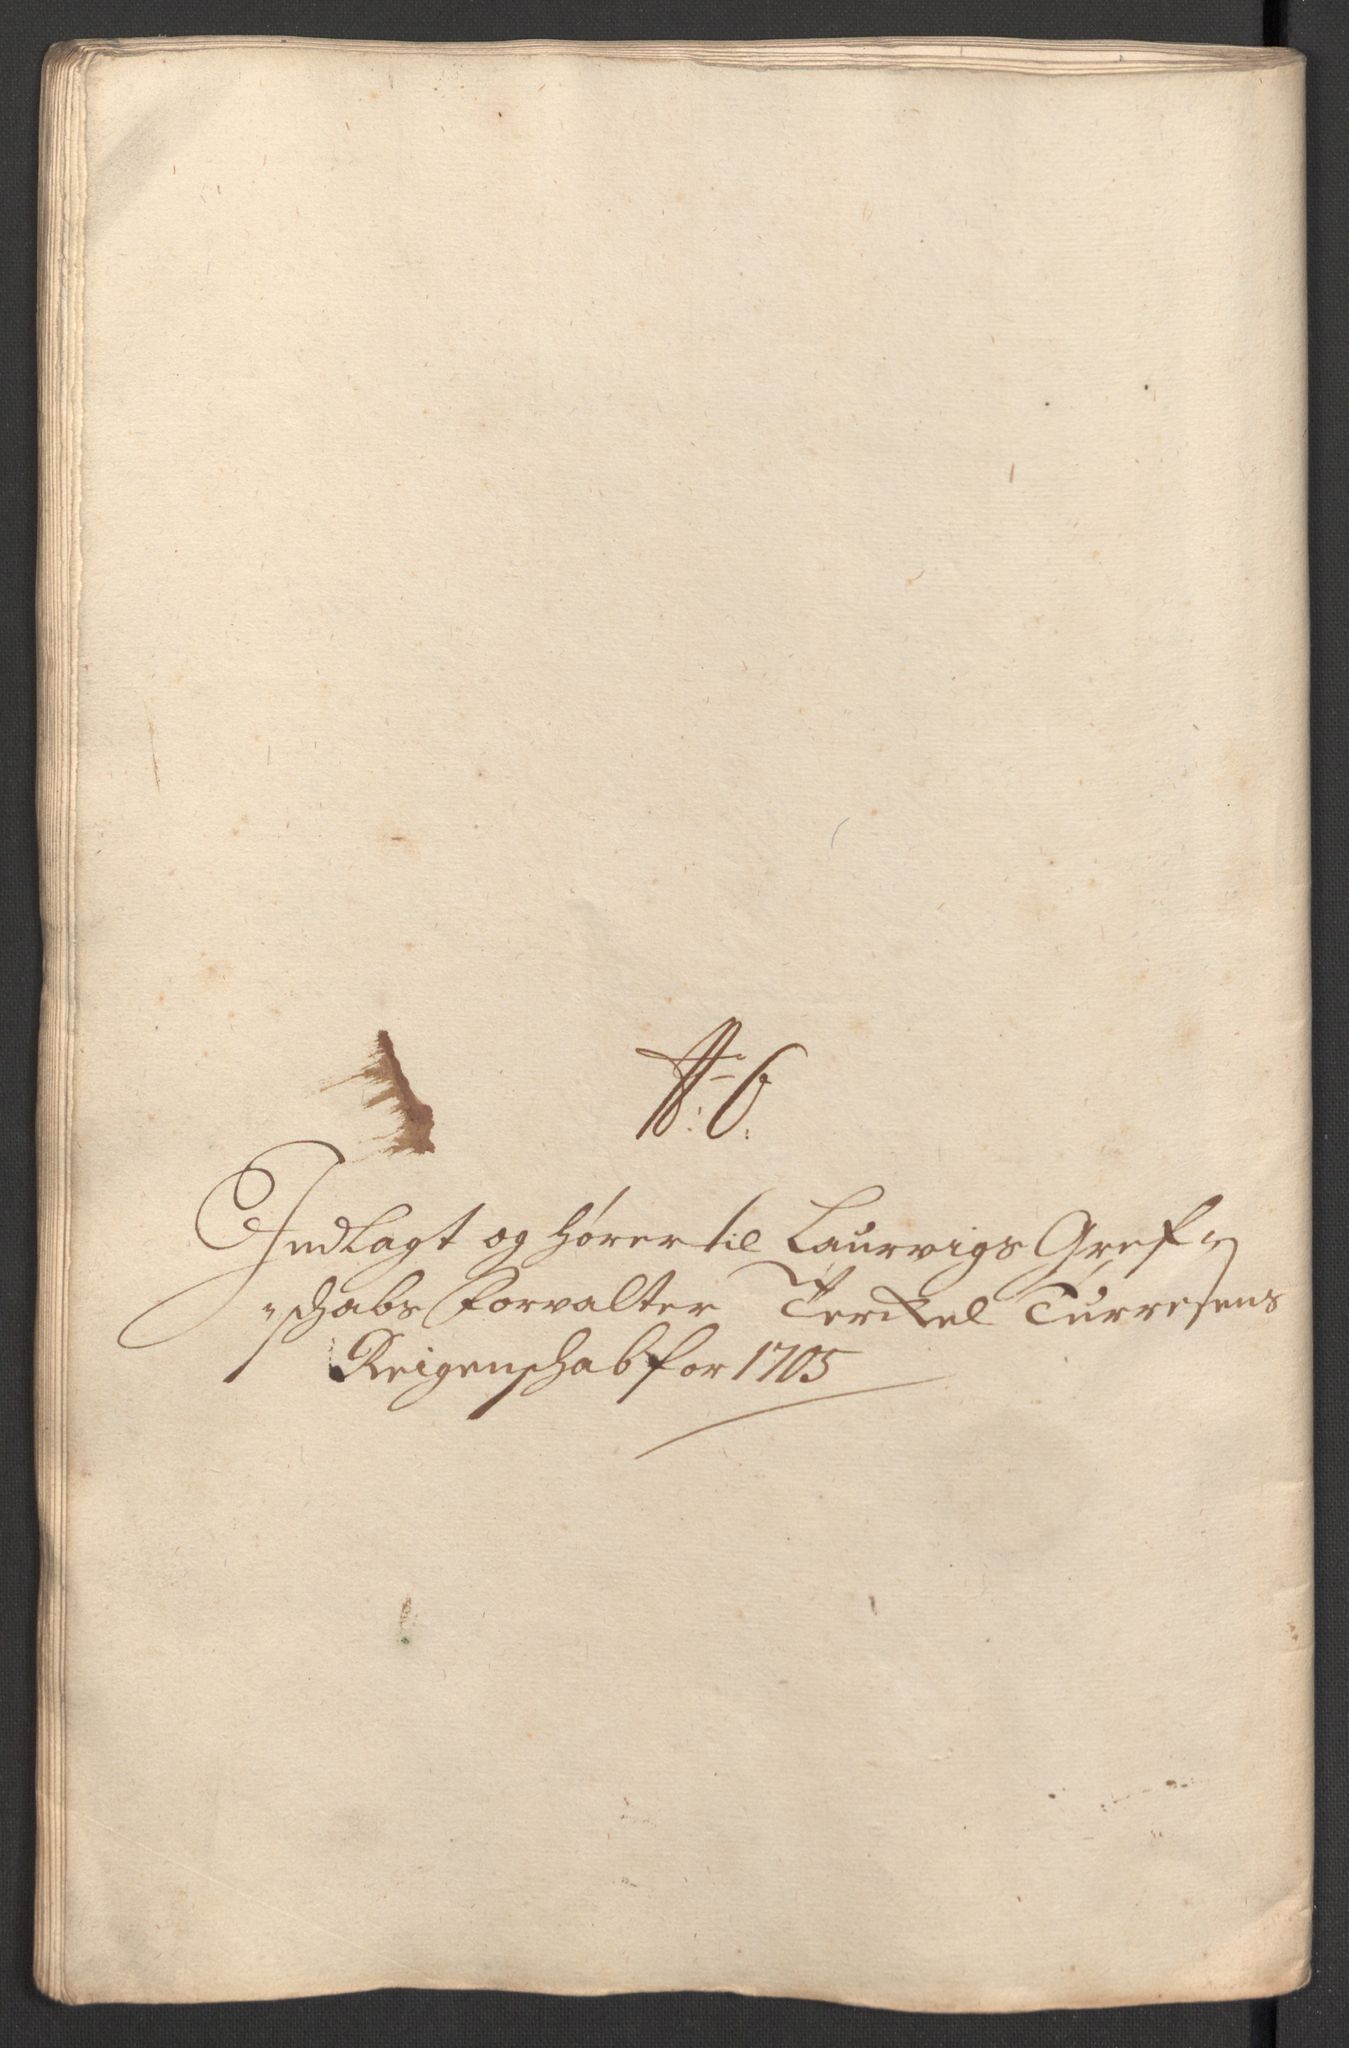 N: 6.
Indlagt og hører til Laurvigs Gref„
„schabs Forvalter Terckel Turresens
Reigenschab for 1705